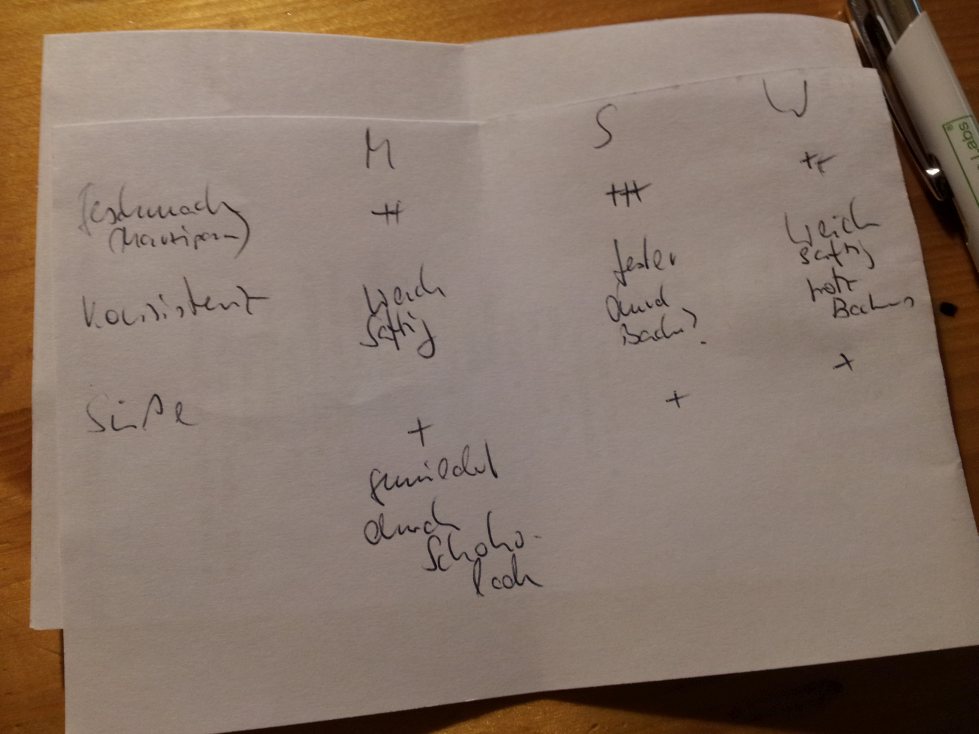 M S W
Geschmack ++ +++ ++
(Marzipan)
Konsistenz weich fester weich
saftig durch saftig
Backen? trotz
Backen?
Süße + + +
gemildert
durch
Schoko-
lade